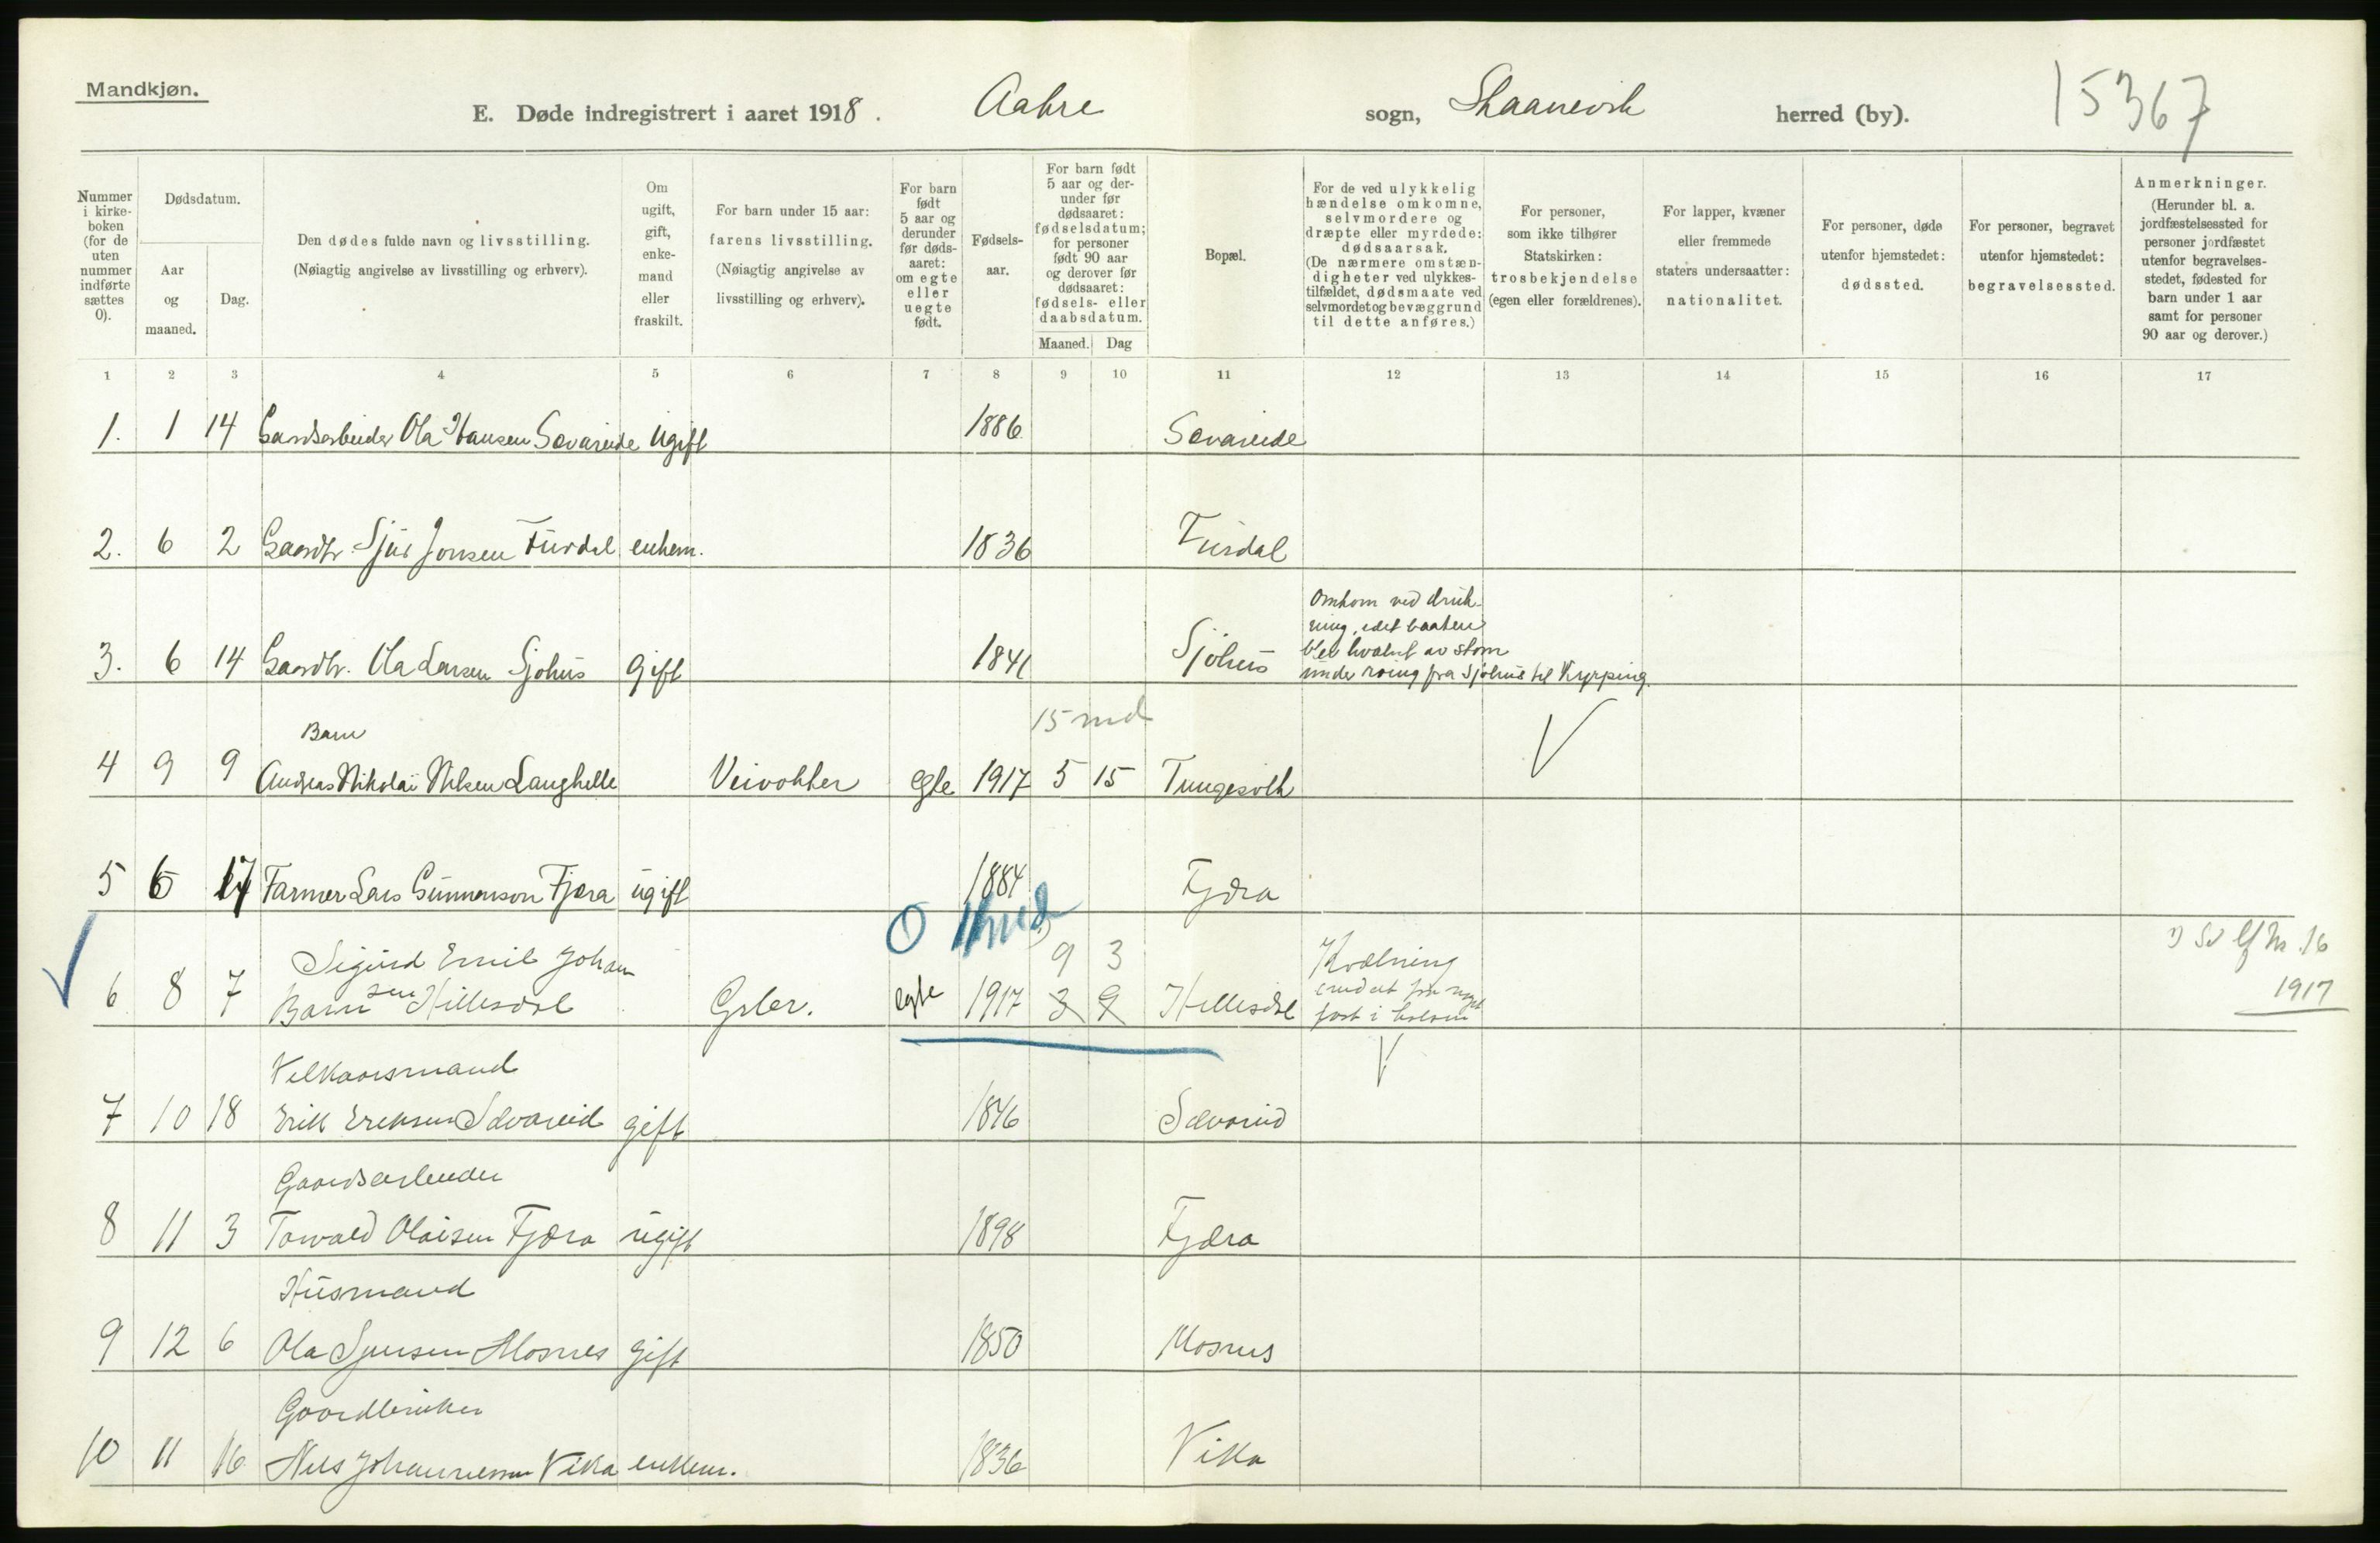 Mandkjøn.
E. Døde indregistrert i aaret 1918. Aakre sogn, Skaanevik herred (by). 15367
Nummer i kirkeboken (for de uten nummer indførte sættes 0).
Dødsdatum.
Aar og maaned.
Dag.
Den dødes fulde navn og livsstilling.
(Nøiagtig angivelse av livsstilling og erhverv).
Om ugift, gift, enkemand eller fraskilt.
For barn under 15 aar: farens livsstilling.
(Nøiagtig angivelse av livsstilling og erhverv).
For barn født 5 aar og derunder før dødsaaret: om egte eller uegte født.
Fødselsaar.
For barn født 5 aar og derunder før dødsaaret: fødselsdatum; for personer født 90 aar og derover før dødsaaret: fødsels- eller daabsdatum.
Maaned. Dag
Bopæl.
For de ved ulykkelig hændelse omkomne, selvmordere og dræpte eller myrdede: dødsaarsak.
(De nærmere omstændigheter ved ulykkestilfældet, dødsmaate ved selvmordet og bevæggrund til dette anføres.)
For personer, som ikke tilhører Statskirken: trosbekjendelse (egen eller forældrenes).
For lapper, kvæner eller fremmede staters undersaatter: nationalitet.
For personer, døde utenfor hjemstedet: dødssted.
For personer, begravet utenfor hjemstedet: begravelsessted.
Anmerkninger.
(Herunder bl. a. jordfæstelsessted for personer jordfæstet utenfor begravelsesstedet, fødested for barn under 1 aar samt for personer 90 aar og derover.)
1 2 3 4 5 6 7 8 9 10 11 12 13 14 15 16 17
1. 1 14 Gardsarbeider Ola Hansen Sævareide ugift 1886 Sævareide
2. 6 2 Gaardbr. Sjur Jonsen Fürdal enkem. 1836 Fürdal
Omkom ved druk-
ning, idet baaten
blev hvælvt av storm
3. 6 14 Gaardbr. Ola Larsen Sjøhus Gift 1841 Sjøhus under roing fra Sjøhus til Kyrping.
15 md
Barn
4 9 9 Andreas Nikolai Nilsen Langhelle Veivokter egte 1917 5 15 Tungesvik
5 6 17 Farmer Lars Gunnarson Fjæra ugift 1884 Fjæra
0 11 md
Sigurd Emil Johan 9 3 Kvælning 1) Se lf Nr. 16
6 8 7 Barn sen Hillesdal Gbr. egte 1917 3 9 Hillesdal
fast i halsen 1917
Velkaarsmand
7 10 18 Erik Eriksen Sævareid gift 1846 Sævareid
Gaardsarbeider
8 11 3 Torvald Olaisen Fjæra ugift 1898 Fjæra
Husmand
9 12 6 Ola Sjursen Mosnes gift 1850 Mosnes
Gaardbruker
10 11 16 Nils Johannessen Vika enkem. 1836 Vika